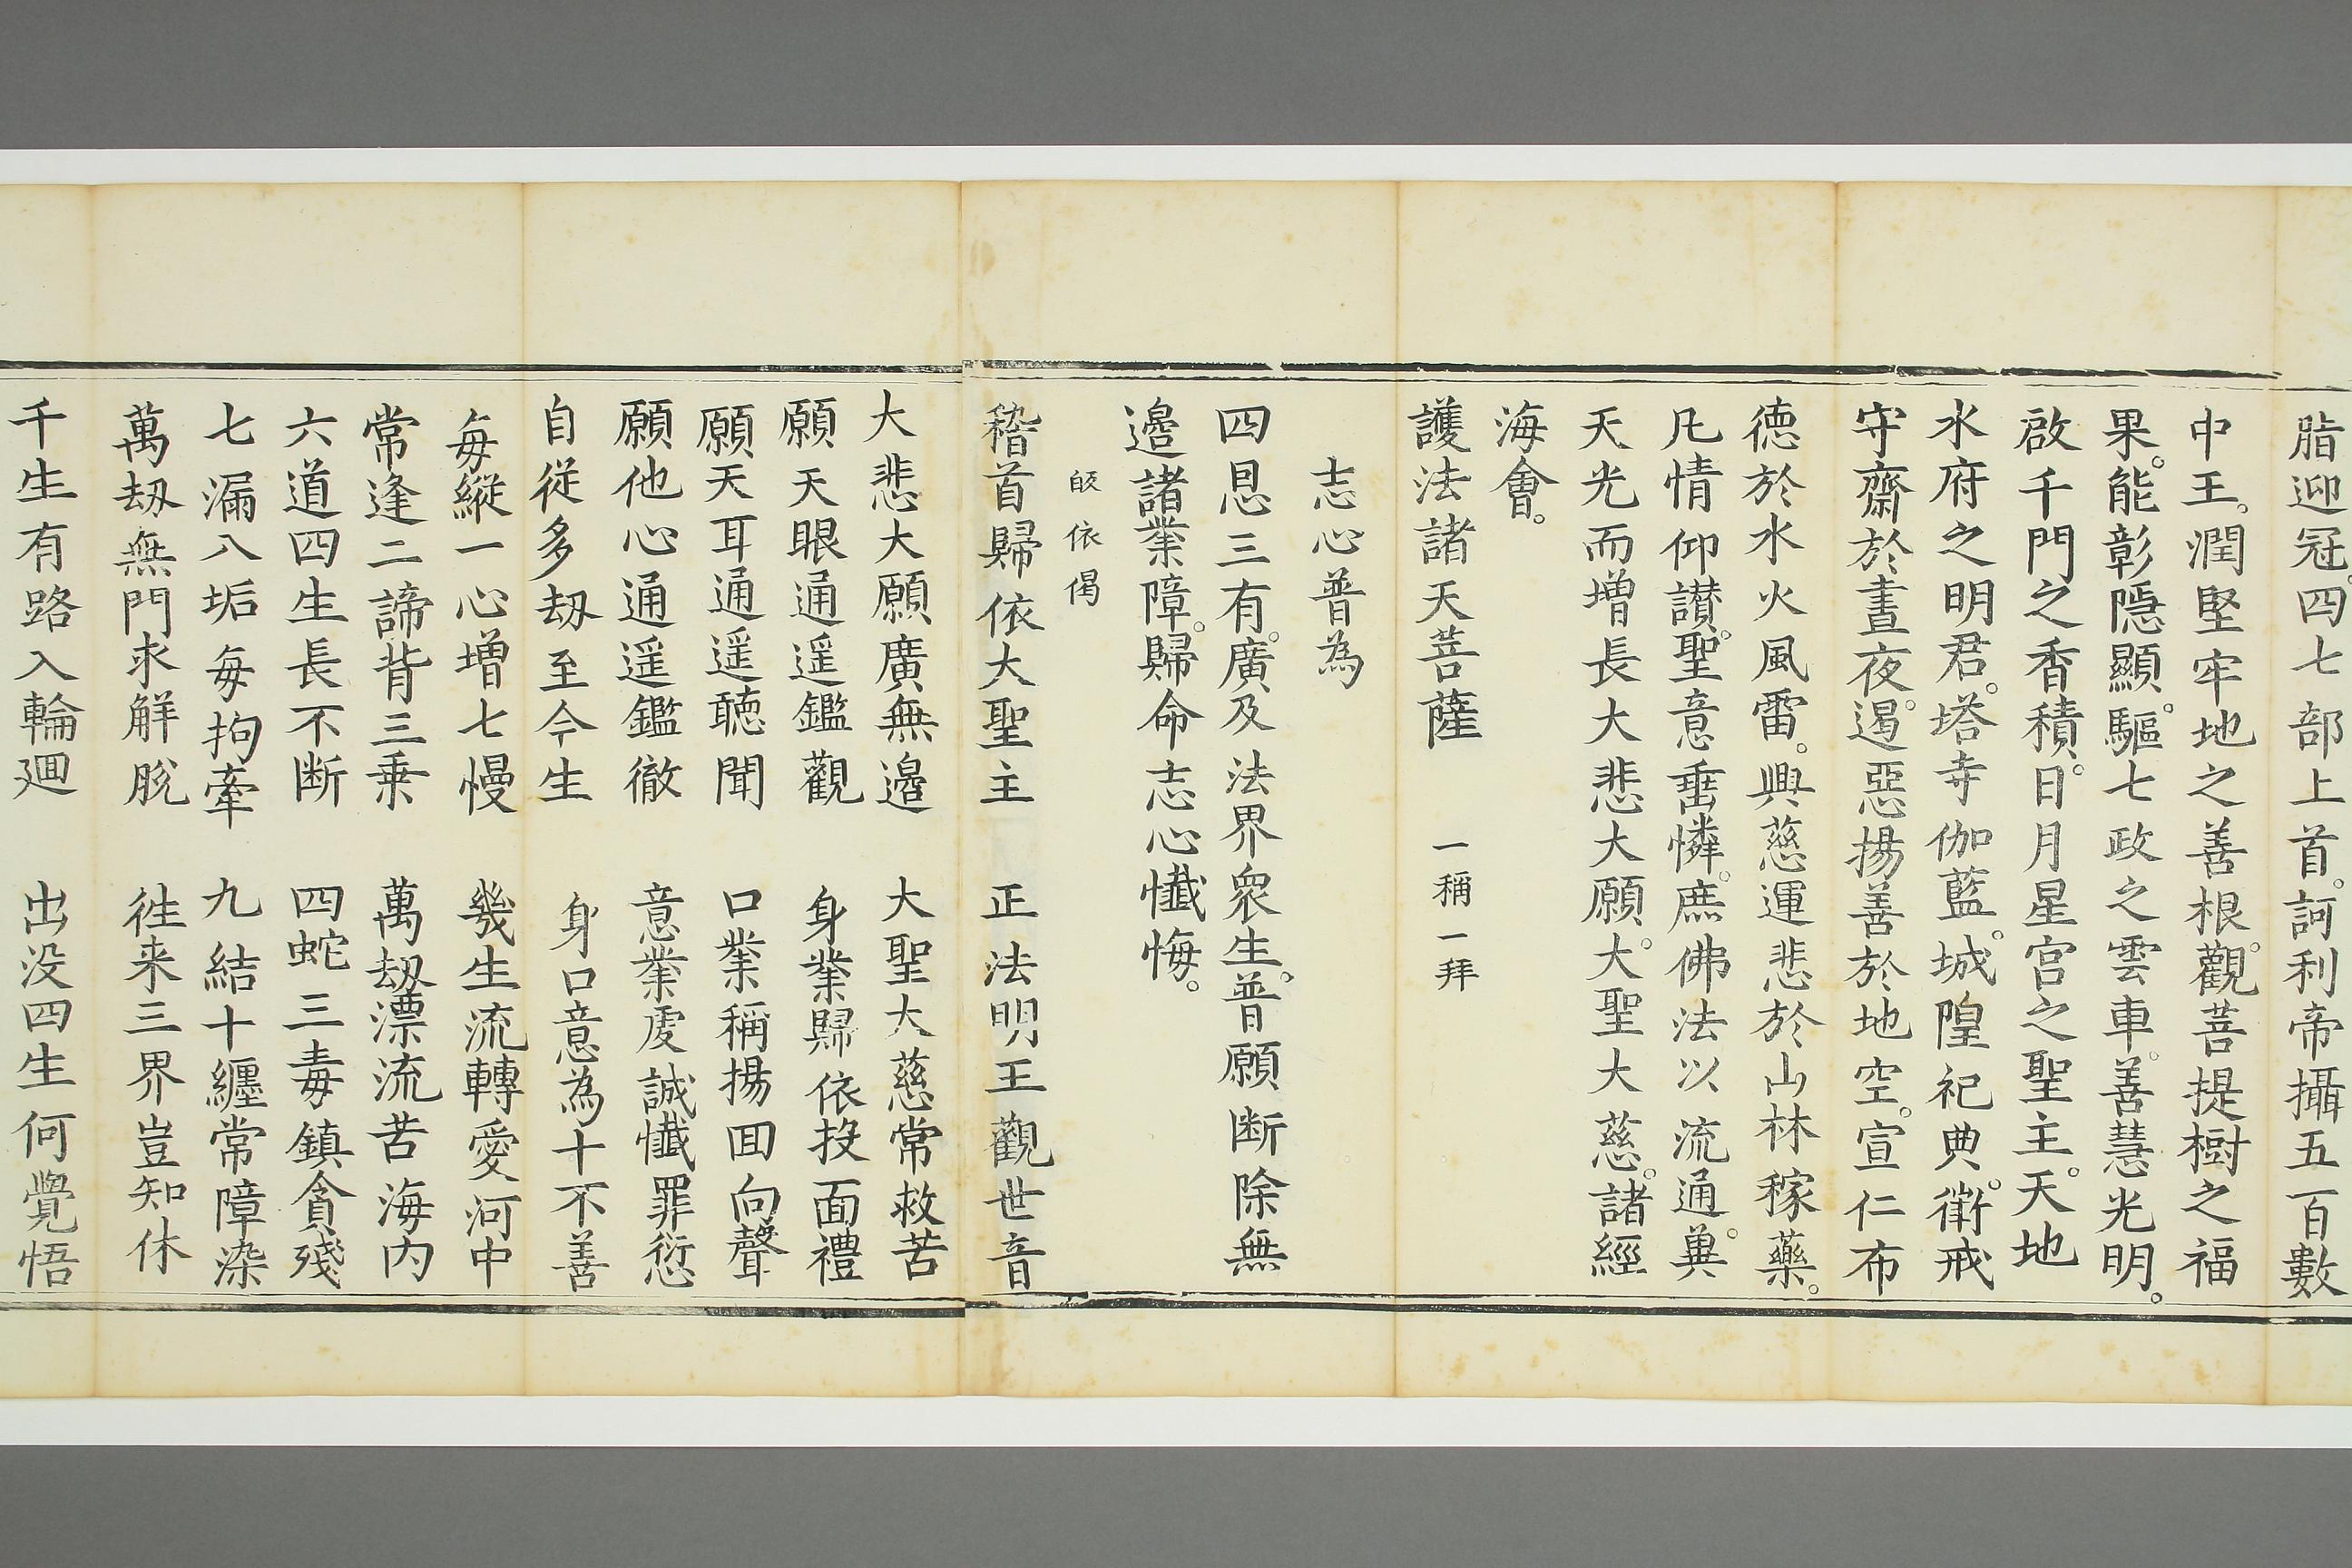 脂迎冠四七部上首。訶利帝攝五百數
中王。潤堅牢地之善根。觀菩提樹之福
果。能彰隱顯。驅七政之雲車。善慧光明。
啟千門之香積。日月星宮之聖主。天地
水府之明君。塔寺伽藍。城隍祀典。衛戒
守齋於晝夜。遏惡揚善於地空。宣仁布
德於水火風雷。興慈運悲於山林稼藥。
凡情仰讃。聖意垂憐。庶佛法以流通。兾
天光而增長大悲大願。大聖大慈。諸經
海會。
護法諸天菩薩 一稱一拜
志心普為
四恩三有。廣及法界衆生。普願断除無
邉諸業障。歸命志心懺悔。
皈依偈
稽首歸依大聖主 正法明王觀世音
大悲大願廣無邉 大聖大慈常救苦
願天眼通遥鑑觀 身業歸依投面禮
願天耳通遥聽聞 口業稱揚囬向聲
願他心通遥鑑徹 意業虔誠懺罪愆
自從多刼至今生 身口意為十不善
每縱一心增七慢 幾生流轉愛河中
常逢二諦背三乗 萬刼漂流苦海内
六道四生長不断 四蛇三毒鎮貪殘
七漏八垢每拘牽 九結十纏常障染
萬刼無門求解脫 徃来三界豈知休
千生有路入輪迴 出没四生何覺悟